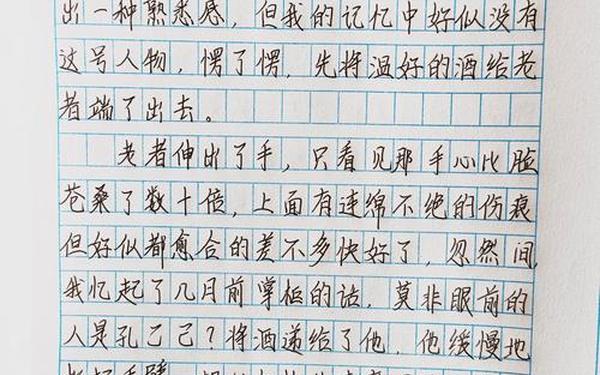 出一种熟悉感，但我的记忆中好似没有
这号人物，愣了愣，先将温好的酒给老
者端了出去。
老者伸出了手，只看见那手心比脸
苍桑了数十倍，上面有连绵不绝的伤痕
但好似都愈合的差不多快好了，忽然间，
我忆起了几月前掌柜的话，莫非眼前的
人是孔乙己？将酒递给了他，他缓慢地